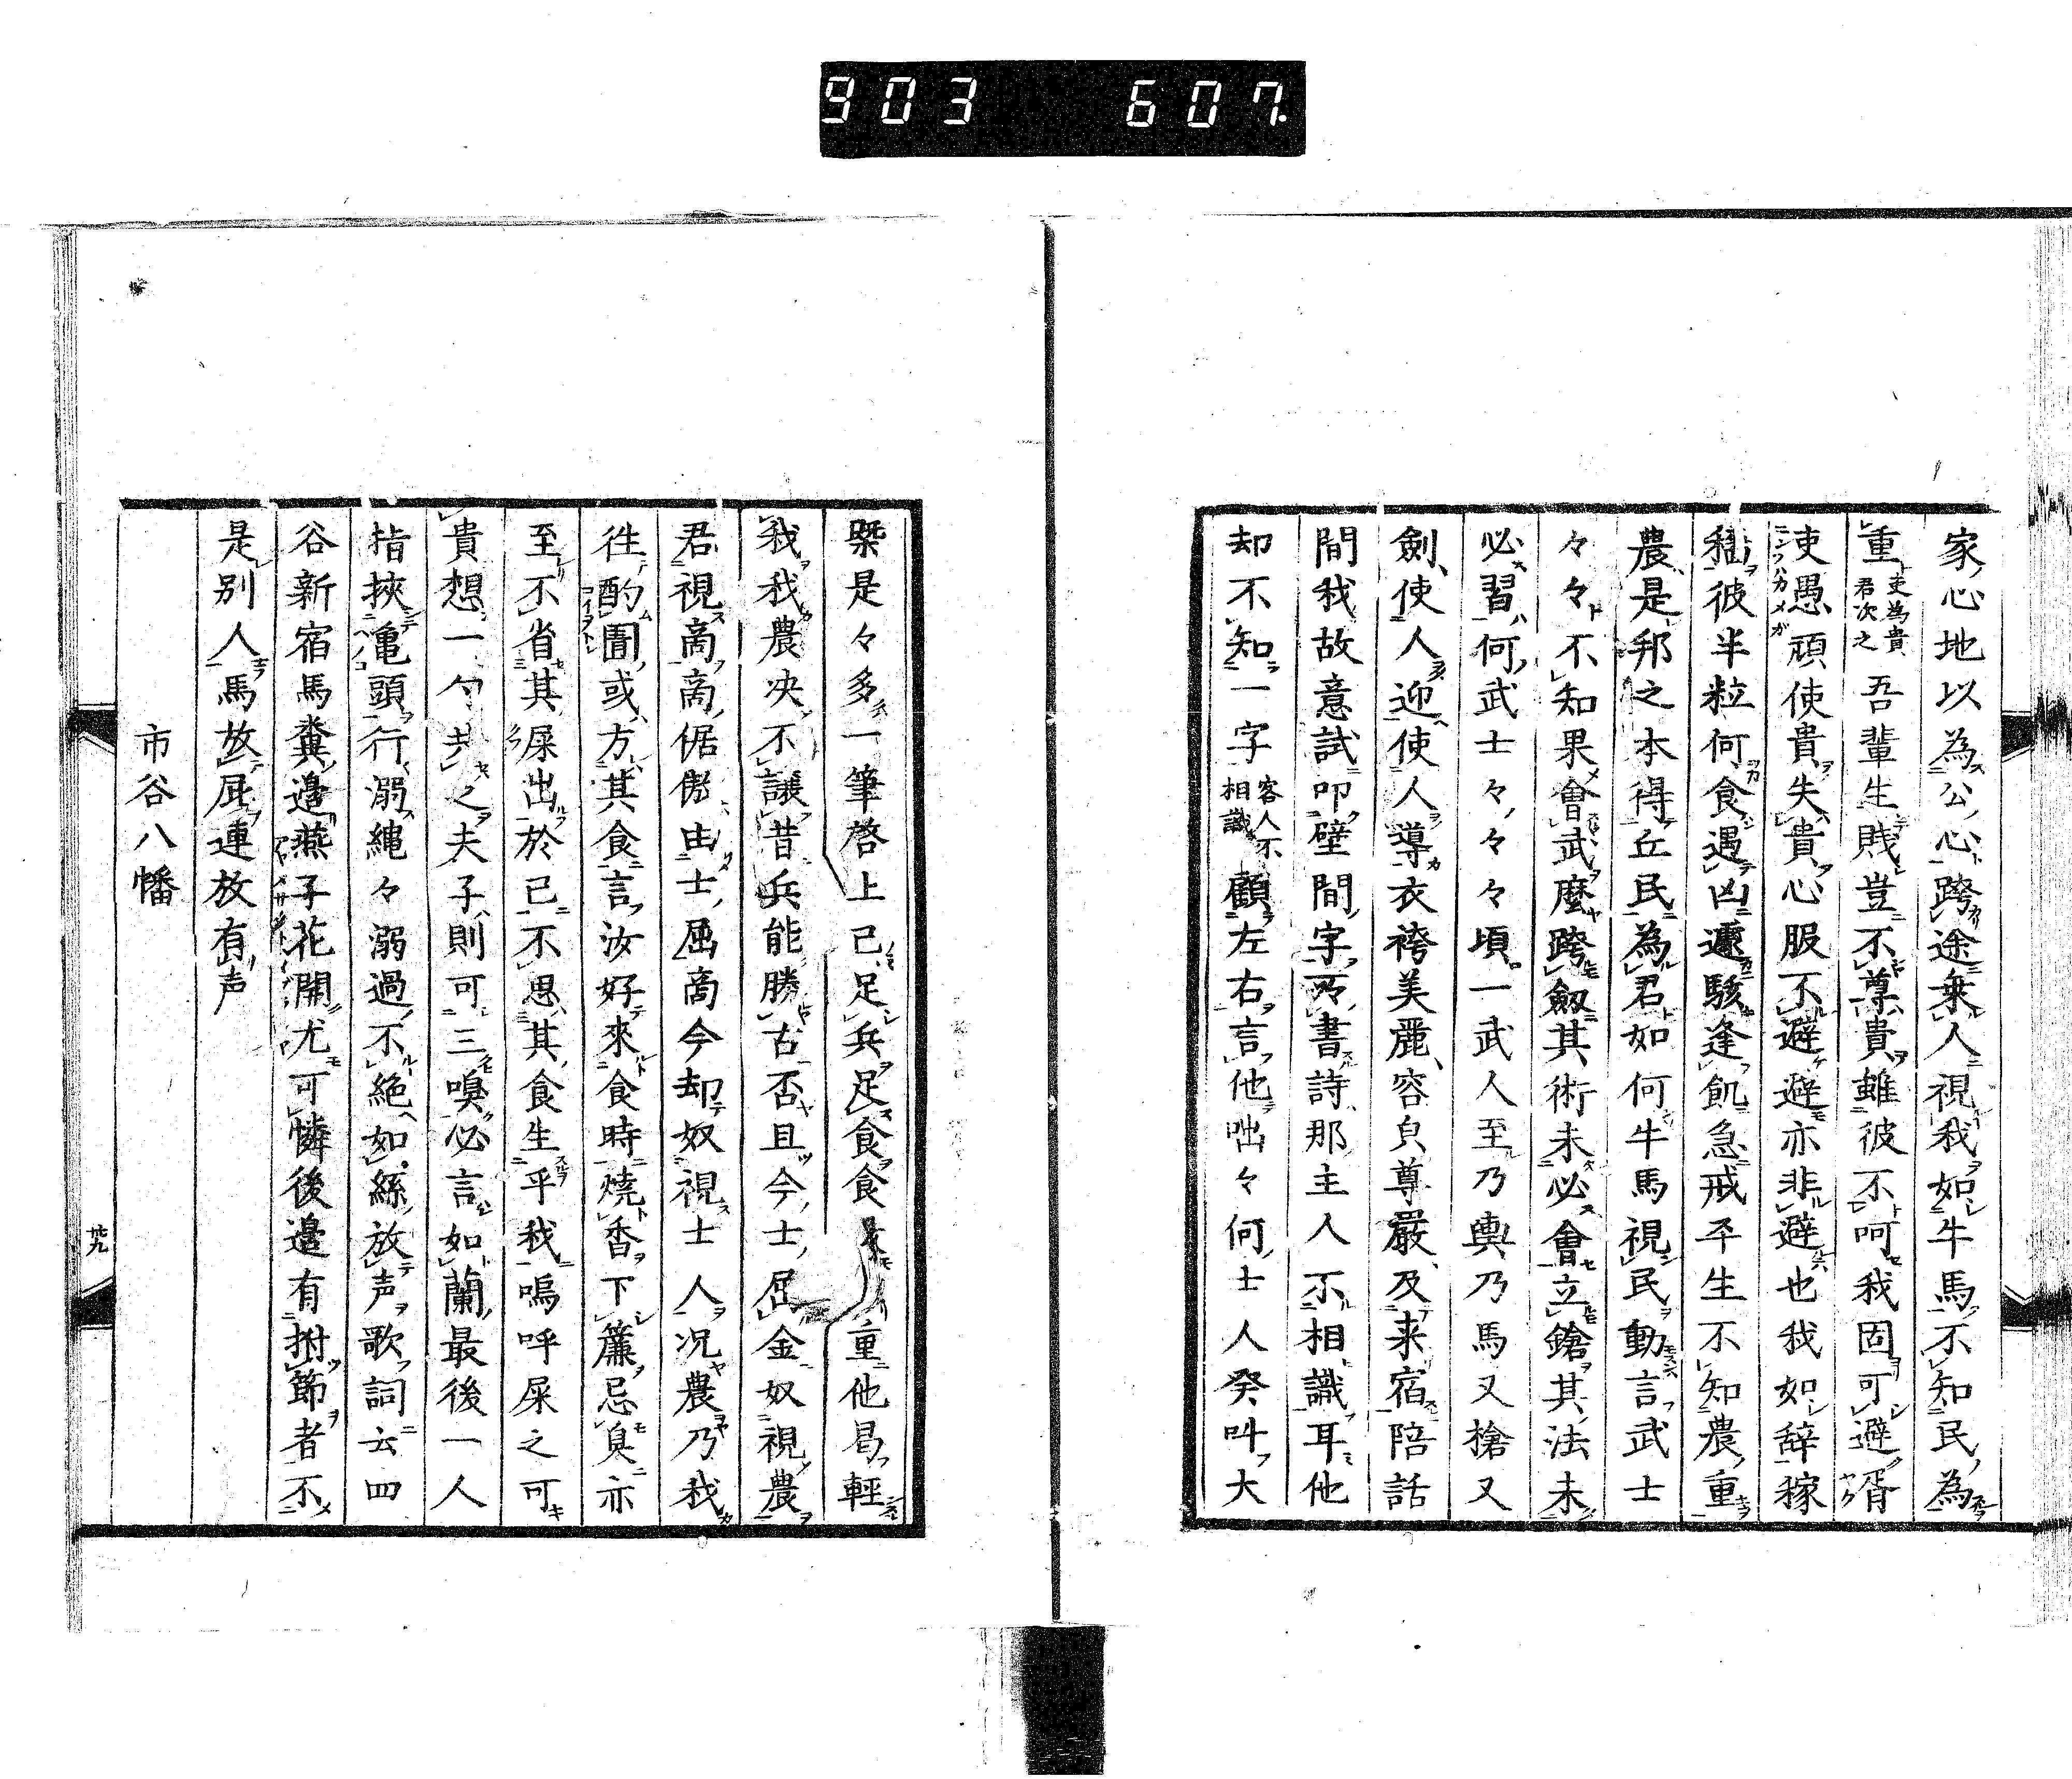 903 607
家心地以為公心跨途乗人視我如牛馬不知民為
重吏為貴君次之吾輩生賎豈不尊貴雖彼不呵我固可避胥
吏愚頑使貴失貴心服不避避亦非避也我如辞稼
穡彼半粒何食遇凶遽駭逢飢急戒平生不知農重
農是邦之本得丘民為君如何牛馬視民動言武士
々々不知果會武麼跨劔其術未必會立鎗其法未
必習何武士々々々頃一武人至乃輿乃馬又槍又
劍使人迎使人導衣袴美麗容皃尊嚴及来宿陪話
間我故意試叩壁間字所書詩那主人不相識耳他
却不知一字客人不相識顧左右言他咄々何士人癸叫大
槩是々多一筆啓上已足兵足食食 重他曷輕
我我農决不讓昔兵能勝古否且今士屈金奴視農
君視商商倨傲由士屈商今却奴視士人况農乃我
徃酌圊或方其食言汝好來食時燒香下簾忌臭亦
至不省其屎出於己不思其食生乎我嗚呼屎之可
貴想一勺 之夫子則可三嗅必言如蘭最後一人
指挾亀頭行溺縄々溺過不絶如絲放声歌詞云四
谷新宿馬糞邉燕子花開尤可憐後邉有拊節者不
是別人馬故屁連放有声
市谷八幡
廿九